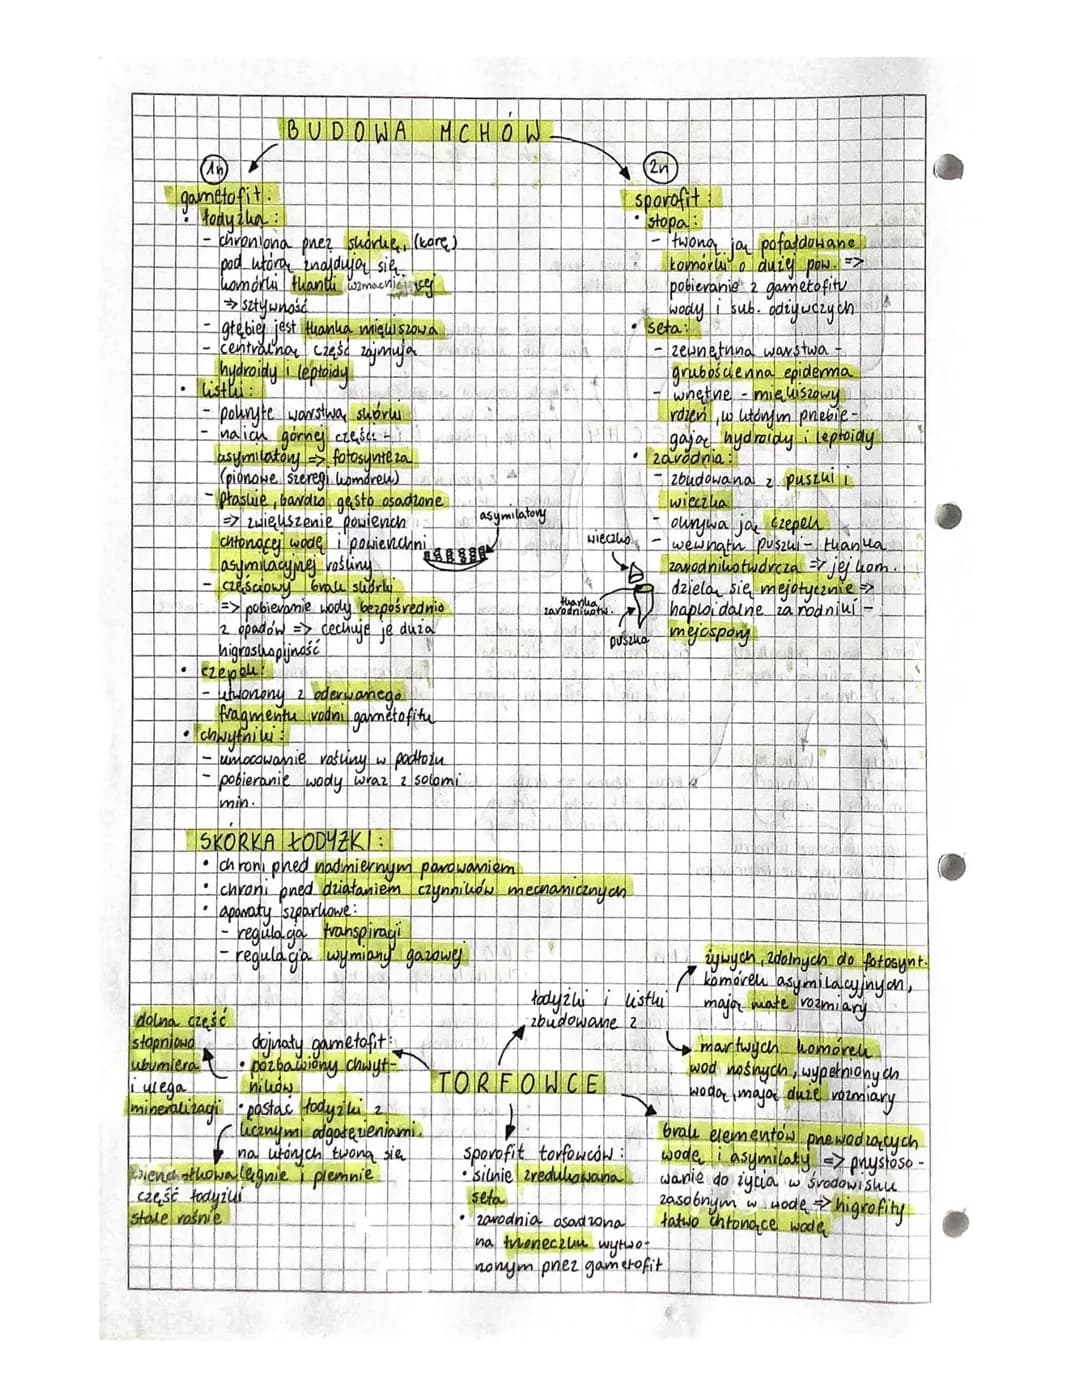 BUDOWA MCHÓW
1n
gametofit:
• łodyżka:
- chroniona przez skórkę, (korę)
pod którą znajdują się
komórki tkanki wzmacniającej
=> sztywność
- głębiej jest tkanka miękiszowa
- centralną część zajmują
hydroidy i leptoidy
• listki:
- pokryte warstwą skórki
- na ich górnej części -
asymilatory => fotosynteza
(pionowe szeregi komórek)
- płaskie, bardzo gęsto osadzone
=> zwiększenie powierzch.
chłonącej wodę i powierzchni
asymilacyjnej rośliny
- częściowy brak skórki
=> pobieranie wody bezpośrednio
z opadów => cechuje je duża
higroskopijność
• czepek:
- utworzony z oderwanego
fragmentu rodni gametofitu
• chwytniki:
- umocowanie rośliny w podłożu
- pobieranie wody wraz z solami
min.
asymilatory
2n
sporofit:
• stopa:
- tworzą ją pofałdowane
komórki o dużej pow. =>
pobieranie z gametofitu
wody i sub. odżywczych
• seta:
- zewnętrzna warstwa -
grubościenna epiderma
- wnętrze - miękiszowy
rdzeń, w którym przebie-
gają hydroidy i leptoidy
• zarodnia:
- zbudowana z puszki i
wieczka
- okrywa ją czepek
- wewnątrz puszki - tkanka
zarodnikotwórcza => jej kom.
dzielą się mejotycznie =>
haploidalne zarodniki -
mejospory
wieczko
tkanka
zarodnikotw.
puszka
SKÓRKA ŁODYŻKI:
• chroni przed nadmiernym parowaniem
• chroni przed działaniem czynników mechanicznych
• aparaty szparkowe:
- regulacja transpiracji
- regulacja wymiany gazowej
TORFOWCE
łodyżki i listki
zbudowane z
żywych, zdolnych do fotosynt.
komórek asymilacyjnych,
mają małe rozmiary
martwych komórek
wodonośnych, wypełnionych
wodą, mają duże rozmiary
dojrzały gametofit:
• pozbawiony chwyt-
ników
• postać łodyżki z
licznymi odgałęzieniami,
na których tworzą się
lęgnie i plemnie
dolna część
stopniowo
obumiera
i ulega
mineralizacji
wierzchołkowa
część łodyżki
stale rośnie
sporofit torfowców:
• silnie zredukowana
seta
• zarodnia osadzona
na trzoneczku wytwo-
rzonym przez gametofit
brak elementów przewodzących
wodę i asymilaty => przystoso-
wanie do życia w środowisku
zasobnym w wodę => higrofity
łatwo chłonące wodę